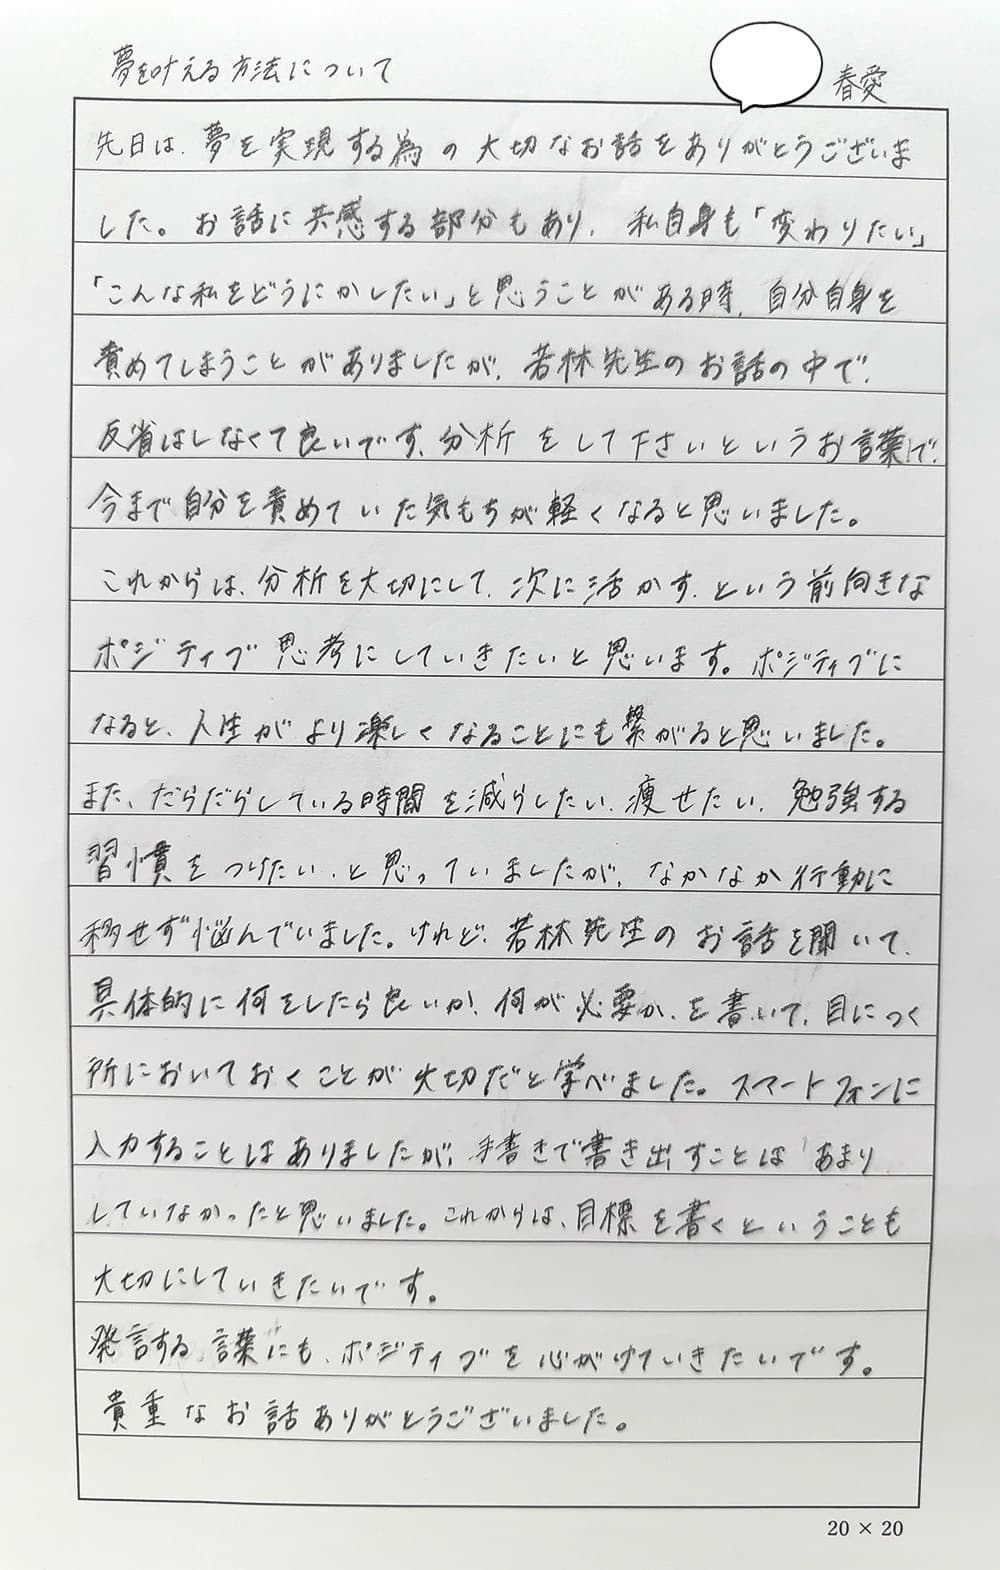 夢を叶える方法について
春愛
先日は、夢を実現する為の大切なお話をありがとうございま
した。お話に共感する部分もあり、私自身も「変わりたい」
「こんな私をどうにかしたい」と思うことがある時、自分自身を
責めてしまうことがありましたが、若林先生のお話の中で、
反省はしなくて良いです、分析をして下さいというお言葉で、
今まで自分を責めていた気もちが軽くなると思いました。
これからは、分析を大切にして、次に活かす、という前向きな
ポジティブ思考にしていきたいと思います。ポジティブに
なると、人生がより楽しくなることにも繋がると思いました。
また、だらだらしている時間を減らしたい、痩せたい、勉強する
習慣をつけたい、と思っていましたが、なかなか行動に
移せず悩んでいました。けれど、若林先生のお話を聞いて、
具体的に何をしたら良いか、何が必要か、を書いて、目につく
所においておくことが大切だと学べました。スマートフォンに
入力することはありましたが、手書きで書き出すことは、あまり
していなかったと思いました。これからは、目標を書くということも
大切にしていきたいです。
発言する言葉にも、ポジティブを心がけていきたいです。
貴重なお話ありがとうございました。
20 × 20